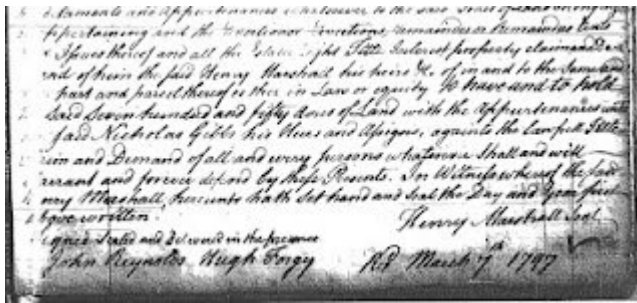 and Appurtenances whatsoever to the said
appertaining and the Reversions remainder or remainders Rents
& Issues thereof and all the Estate right Title Interest property claim and
of him the said Henry Marshall his heirs &c. of in and to the Same and
part and parcel thereof either in Law or equity To have and to hold
said Seven hundred and fifty Acres of Land with the Appurtenances unto
said Nicholas Gibbs his Heirs and Assigns, against the lawful Title
and Demand of all and every persons whatsoever Shall and will
warrant and forever defend by these Presents. In Witness whereof the said
Henry Marshall, hereunto hath Set hand and Seal the Day and Year first
above written
Henry Marshall Seal
Signed Sealed and Delivered in the presence
John Reynolds Hugh Forgy Rd. March 7th 1797